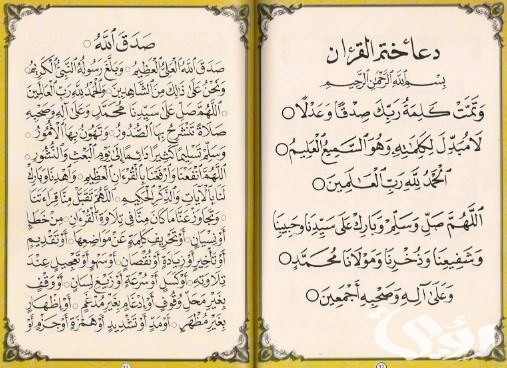 دعاء ختم القرآن
بِسْمِ اللَّهِ الرَّحْمَنِ الرَّحِيمِ
وَتَمَّتْ كَلِمَةُ رَبِّكَ صِدْقًا وَعَدْلًا
لَا مُبَدِّلَ لِكَلِمَاتِهِ وَهُوَ السَّمِيعُ الْعَلِيمُ
الْحَمْدُ لِلَّهِ رَبِّ الْعَالَمِينَ
اللَّهُمَّ صَلِّ وَسَلِّمْ وَبَارِكْ عَلَى سَيِّدِنَا وَحَبِيبِنَا
وَشَفِيعِنَا وَذُخْرِنَا وَمَوْلَانَا مُحَمَّدٍ
وَعَلَى آلِهِ وَصَحْبِهِ أَجْمَعِينَ
صَدَقَ اللَّهُ
صَدَقَ اللَّهُ الْعَلِيُّ الْعَظِيمُ وَبَلَّغَ رَسُولُهُ النَّبِيُّ الْكَرِيمُ
وَنَحْنُ عَلَى ذَلِكَ مِنَ الشَّاهِدِينَ وَالْحَمْدُ لِلَّهِ رَبِّ الْعَالَمِينَ
اللَّهُمَّ صَلِّ عَلَى سَيِّدِنَا مُحَمَّدٍ وَعَلَى آلِهِ وَصَحْبِهِ
صَلَاةً تَنْشَرِحُ بِهَا الصُّدُورُ وَتَهُونُ بِهَا الْأُمُورُ
وَسَلِّمْ تَسْلِيمًا كَثِيرًا دَائِمًا إِلَى يَوْمِ الْبَعْثِ وَالنُّشُورِ
اللَّهُمَّ انْفَعْنَا وَارْفَعْنَا بِالْقُرْءَانِ الْعَظِيمِ وَاهْدِنَا وَبَارِكْ
لَنَا بِالْآيَاتِ وَالذِّكْرِ الْحَكِيمِ اللَّهُمَّ تَقَبَّلْ مِنَّا قِرَاءَتَنَا
وَتَجَاوَزْ عَنَّا مَا كَانَ مِنَّا فِي تِلَاوَةِ الْقُرْءَانِ مِنْ خَطَإٍ
أَوْ نِسْيَانٍ أَوْ تَحْرِيفِ كَلِمَةٍ عَنْ مَوَاضِعِهَا أَوْ تَقْدِيمٍ
أَوْ تَأْخِيرٍ أَوْ زِيَادَةٍ أَوْ نُقْصَانٍ أَوْ سَهْوٍ أَوْ تَعْجِيلٍ عِنْدَ
تِلَاوَتِهِ أَوْ كَسَلٍ أَوْ سُرْعَةٍ أَوْ زَيْغِ لِسَانٍ أَوْ وُقُفٍ
بِغَيْرِ مَحَلِّ وُقُوفٍ أَوْ إِدْغَامٍ بِغَيْرِ مُدْغَمٍ أَوْ إِظْهَارٍ
بِغَيْرِ مُظْهَرٍ أَوْ مَدٍّ أَوْ تَشْدِيدٍ أَوْ هَمْزَةٍ أَوْ جَزْمٍ أَوْ